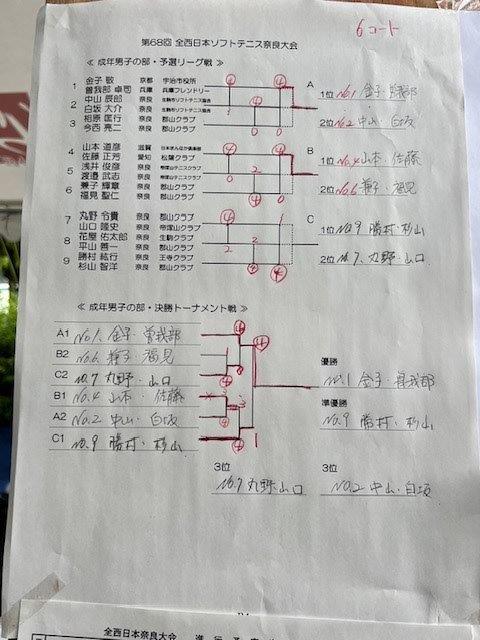 6コート
第68回 全西日本ソフトテニス奈良大会
≪ 成年男子の部・予選リーグ戦 ≫
1 金子 敬 京都 宇治市役所
曽我部 卓司 兵庫 兵庫フレンドリー
2 中山 辰郎 奈良 生駒市ソフトテニス協会
白坂 大介 奈良 生駒市ソフトテニス協会
3 相原 匡行 奈良 郡山クラブ
今西 亮二 奈良 郡山クラブ
④ ④
1 ④
1
0 0
A
1位 No.1 金子 曽我部
2位 No.2 中山・白坂
4 山本 道彦 滋賀
佐藤 正芳 愛知 松葉クラブ
5 浅井 俊彦 奈良 帝塚山テニスクラブ
渡邉 武志 奈良 帝塚山テニスクラブ
6 兼子 輝章 奈良 郡山クラブ
福見 聖仁 奈良 郡山クラブ
④ ④
0 2
④ 0
B
1位 No.4 山本・佐藤
2位 No.6 兼子・福見
7 丸野 令貴 奈良 郡山クラブ
山口 隆史 奈良 帝塚山クラブ
8 花屋 佑太郎 奈良 生駒クラブ
平山 善一 奈良 郡山クラブ
9 勝村 紘行 奈良 王寺クラブ
杉山 智洋 奈良 郡山クラブ
④ 1
2 2
④ ④
C
1位 No.9 勝村・杉山
2位 No.7 丸野・山口
≪ 成年男子の部・決勝トーナメント戦 ≫
A1 No.1 金子 曽我部
B2 No.6 兼子 福見
C2 No.7 丸野・山口
B1 No.4 山本・佐藤
A2 No.2 中山・白坂
C1 No.9 勝村・杉山
④ ④
1 0
④
④
④ 1
優勝
No.1 金子・曽我部
準優勝
No.9 勝村・杉山
3位
No.7 丸野・山口
3位
No.2 中山・白坂
全西日本奈良大会 進 行